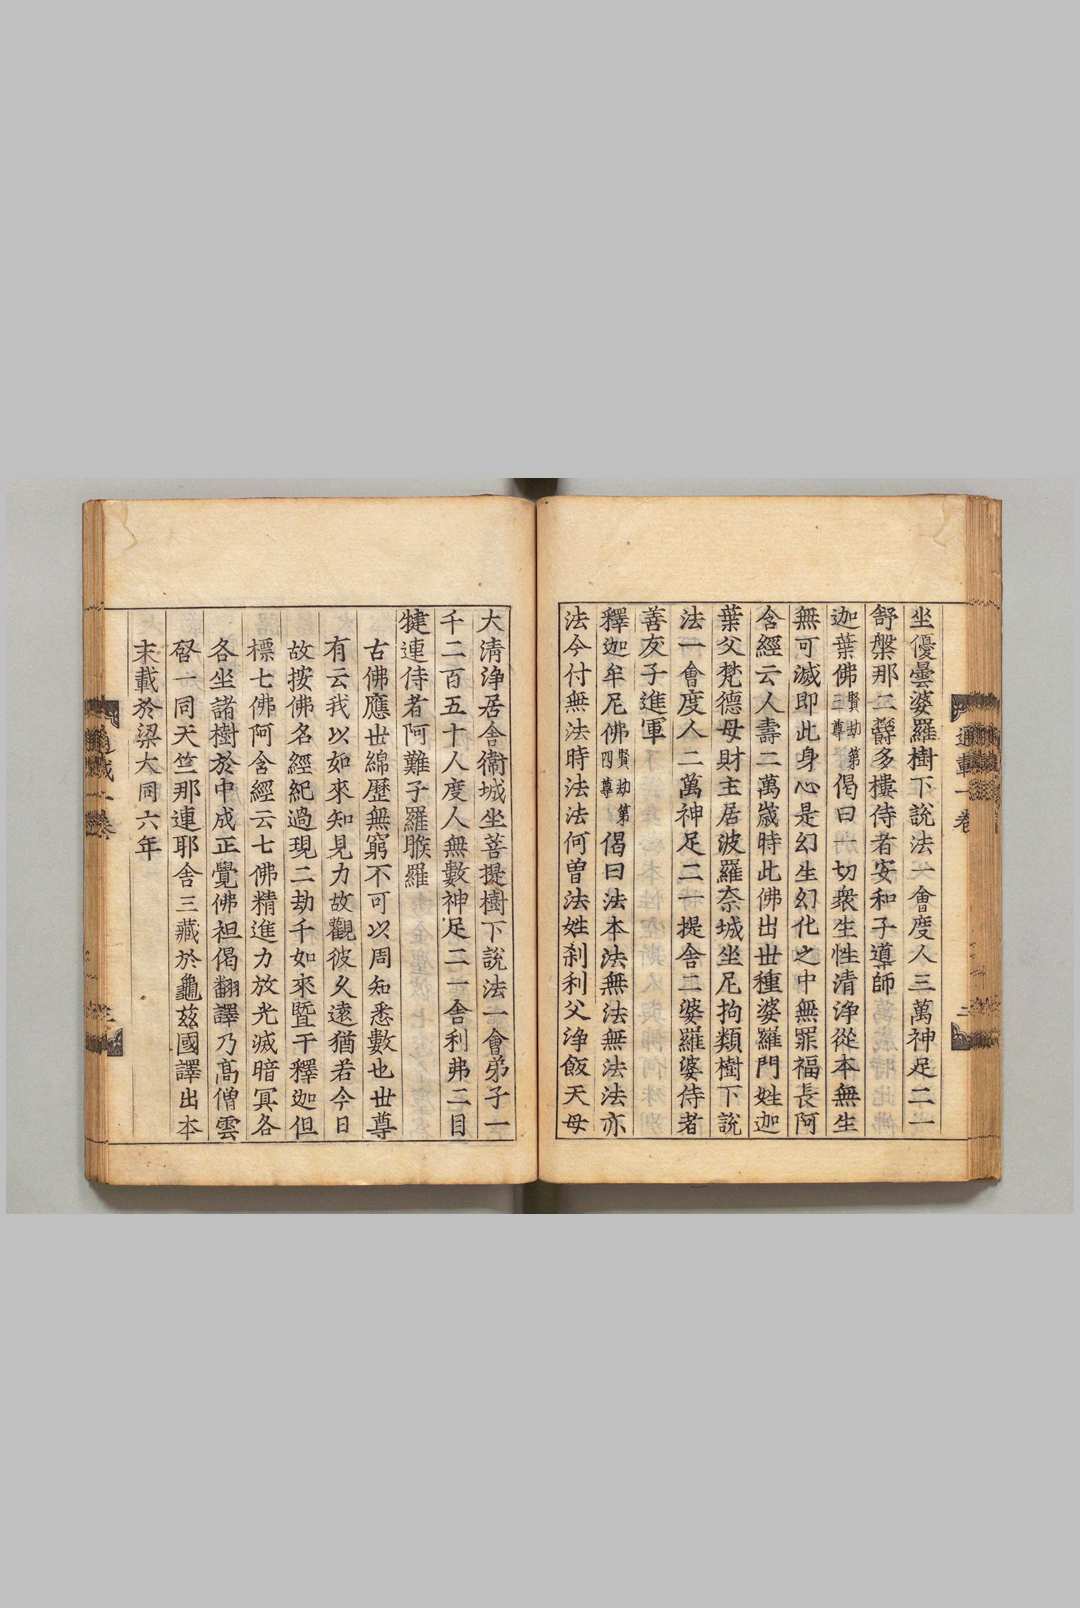 坐優曇婆羅樹下說法一會度人三萬神足二一
舒槃那二鬱多樓侍者安和子導師
迦葉佛賢劫第三尊偈曰一切衆生性清淨從本無生
無可滅即此身心是幻生幻化之中無罪福長阿
含經云人壽二萬歲時此佛出世種婆羅門姓迦
葉父梵德母財主居波羅奈城坐尼拘類樹下說
法一會度人二萬神足二一提舍二婆羅婆侍者
善友子進軍
釋迦牟尼佛賢劫第四尊偈曰法本法無法無法法亦
法今付無法時法法何曾法姓刹利父淨飯天母
大清淨居舍衞城坐菩提樹下說法一會弟子一
千二百五十人度人無數神足二一舍利弗二目
犍連侍者阿難子羅睺羅
古佛應世綿歷無窮不可以周知悉數也世尊
有云我以如來知見力故觀彼久遠猶若今日
故按佛名經紀過現二劫千如來曁于釋迦但
標七佛阿含經云七佛精進力放光滅暗冥各
各坐諸樹於中成正覺佛祖偈翻譯乃髙僧雲
啓一同天竺那連耶舍三藏於龜兹國譯出本
末載於梁大同六年
通載一卷